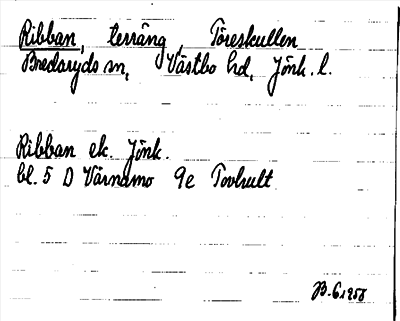 Ribban, terräng, Töreskullen
Bredaryds sn, Västbo hd, Jönk. l.
Ribban ek. Jönk.
bl. 5 D Värnamo 9e Tovhult
B.G.1958